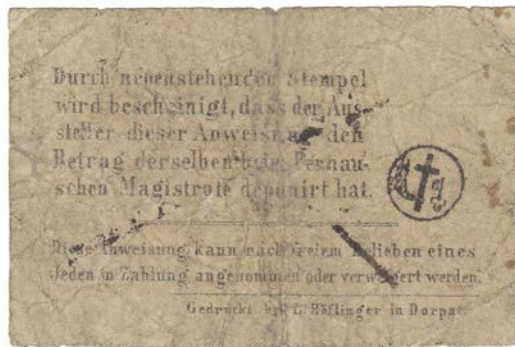 Durch nebenstehenden Stempel
wird bescheinigt, dass der Aus-
steller dieser Anweisung den
Betrag derselben beim Pernau-
schen Magistrate deponirt hat.
Diese Anweisung kann nach freiem Belieben eines
Jeden in Zahlung angenommen oder verweigert werden.
Gedruckt bei E. Höflinger in Dorpat.